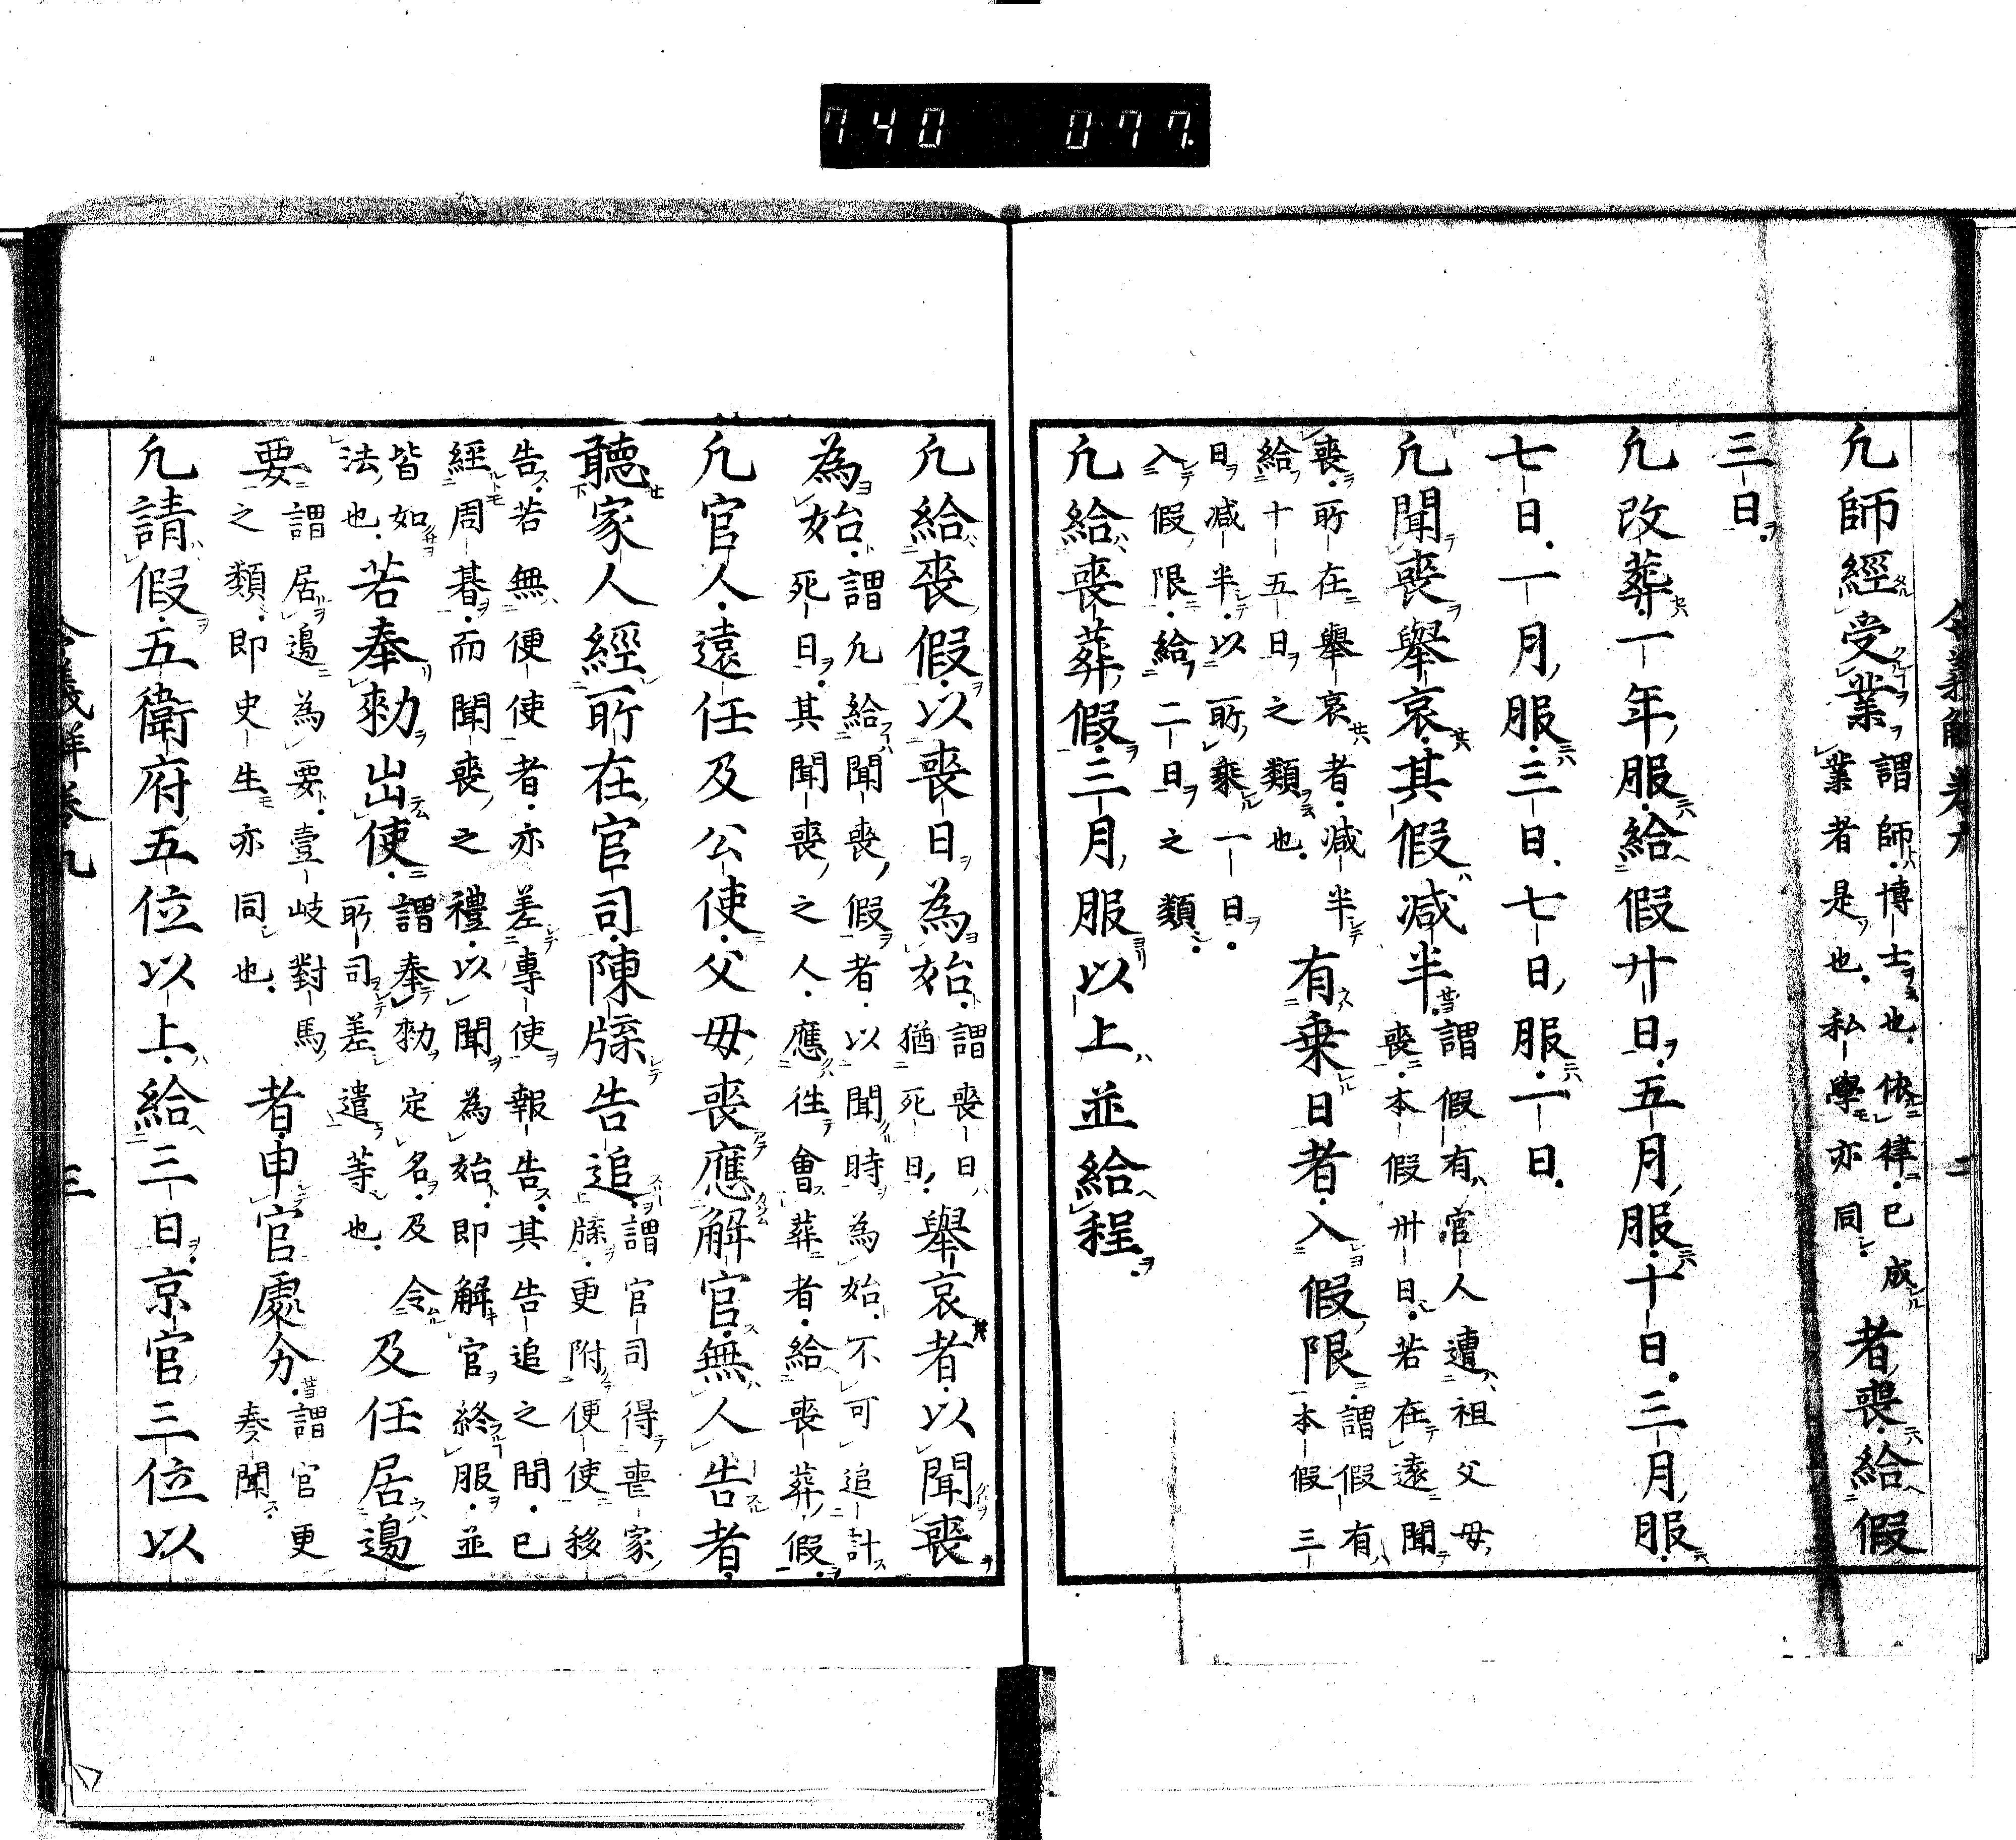 740 077.
凢師經受業謂師博士也依律已成業者是也私學亦同者喪給假
三日
凢改葬一年服給假廿日五月服十日三月服
七日一月服三日七日服一日
凢聞喪舉哀其假减半謂假有官人遭祖父母喪本假卅日若在遠聞
喪所在舉哀者减半給十五日之類也有乗日者入假限謂假有本假三
日减半以所乘一日入假限給二日之類
凢給喪葬假三月服以上並給程
凢給喪假以喪日為始謂喪日猶死日舉哀者以聞喪
為始謂凢給聞喪假者以聞時為始不可追計死日其聞喪之人應徃會葬者給喪葬假
凢官人遠任及公使父母喪應解官無人告者
聽家人經所在官司陳牒告追謂官司得喪家牒更附便使移
告若無便使者亦差專使報告其告追之間已經周朞而聞喪之禮以聞為始即解官終服並
皆如令法也若奉勅出使謂奉勅定名及所司差遣等也及任居邊
要謂居邊為要壹岐對馬之類即史生亦同也者申官處分謂官更奏聞
凢請假五衛府五位以上給三日京官三位以
令義解卷九 三